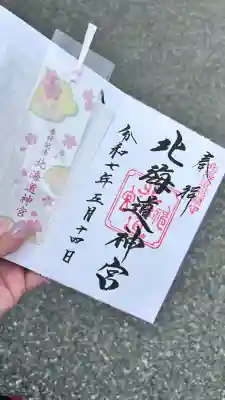 奉拝
北海道神宮
令和七年五月十四日
北海道神宮